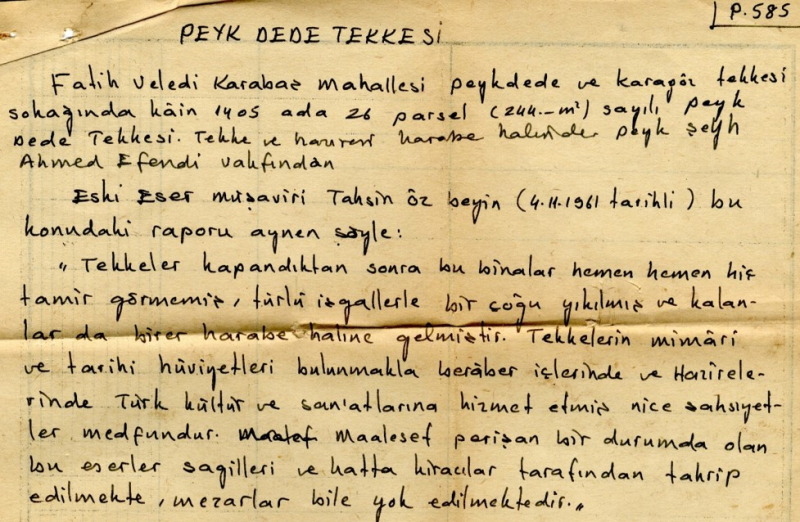 P. 585
PEYK DEDE TEKKESİ
Fatih Veledi Karabaş Mahallesi peykdede ve karagöz tekkesi
sokağında kâin 1405 ada 26 parsel (244.- m²) sayılı Peyk
Dede Tekkesi. Tekke ve haziresi harabe halinde Peyk Şeyh
Ahmed Efendi vakfından
Eski Eser müşaviri Tahsin Öz beyin (4.11.1961 tarihli) bu
konudaki raporu aynen şöyle:
„ Tekkeler kapandıktan sonra bu binalar hemen hemen hiç
tamir görmemiş, türlü işgallerle bir çoğu yıkılmış ve kalan-
lar da birer harabe haline gelmiştir. Tekkelerin mimâri
ve tarihi hüviyetleri bulunmakla berâber içlerinde ve Hazîrele-
rinde Türk kültür ve san'atlarına hizmet etmiş nice şahsiyet-
ler medfundur. Maalesef perişan bir durumda olan
bu eserler sagilleri ve hatta kiracılar tarafından tahrip
edilmekte, mezarlar bile yok edilmektedir.„